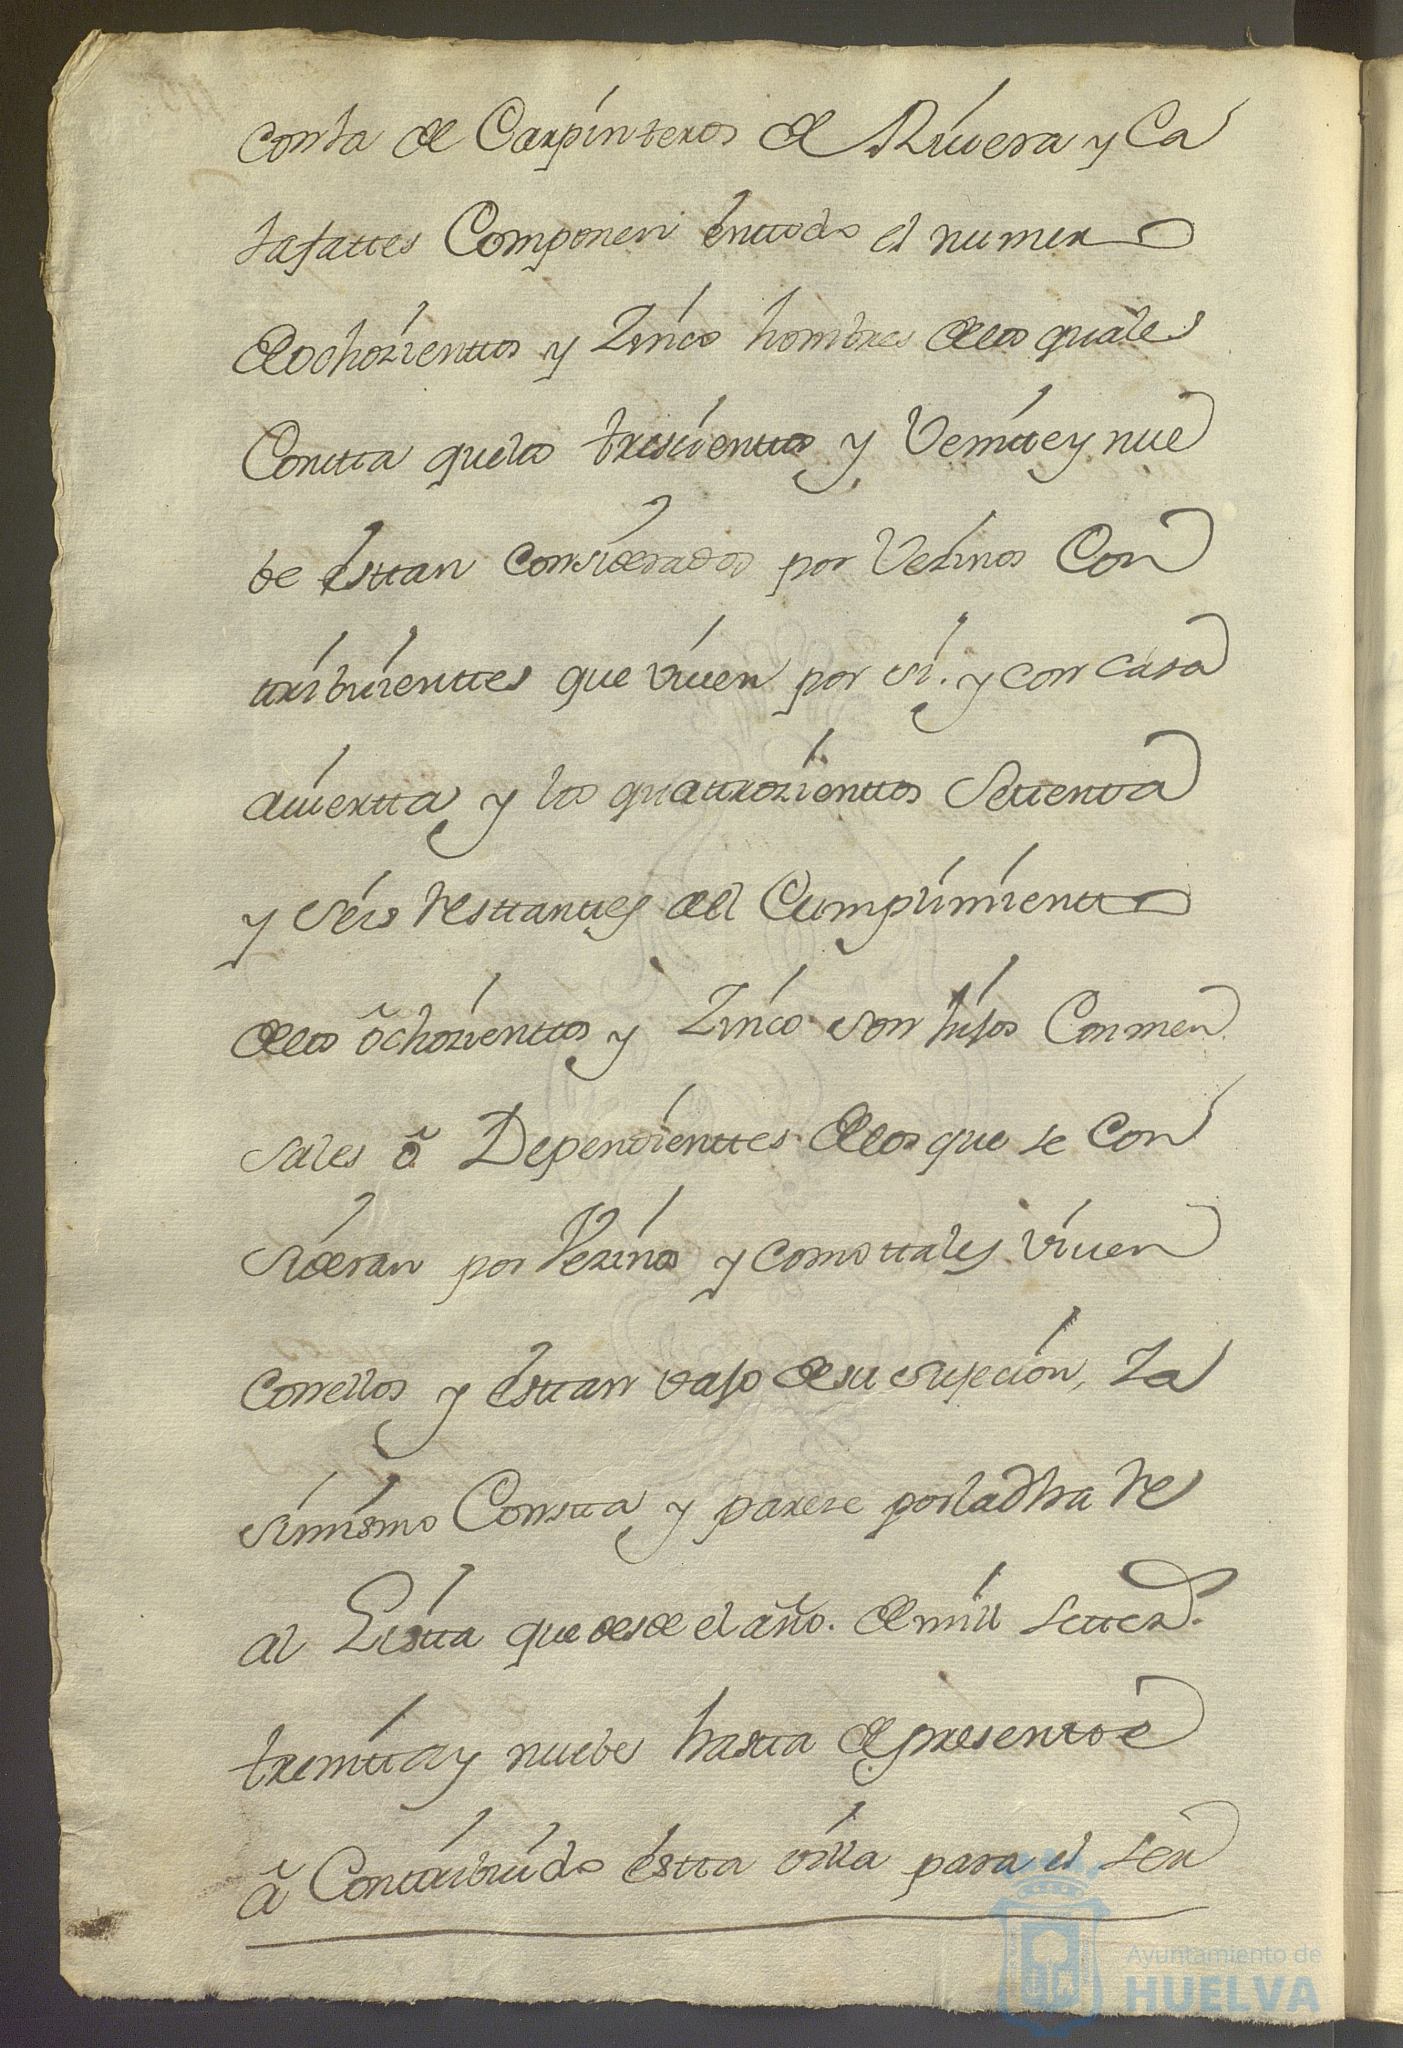 conla de Carpinteros de Riuera y Ca
lafattes Componen enttodo el numero
de ochozienttos y Zinco hombres de los quales
Constta que los trescienttos y Veintte y nue
be esttan considerados por Vezinos Con
ttribuienttes que viuen por si. y con casa
auiertta y los quattrozienttos Settentta
y seis resttanttes del Cumplimientto
de los ochozienttos y Zinco son hijos Conmen
sales o Dependienttes de los que se con
sideran por Vezinos y como ttales viuen
con ellos y esttan vajo de su sujecion, Za
simismo Constta y pareze por la dha Re
al Listta que desde el año. de mill settez.
treintta y nuebe hastta el presentte
a Conttribuido estta villa para el Ser
Ayuntamiento de
HUELVA